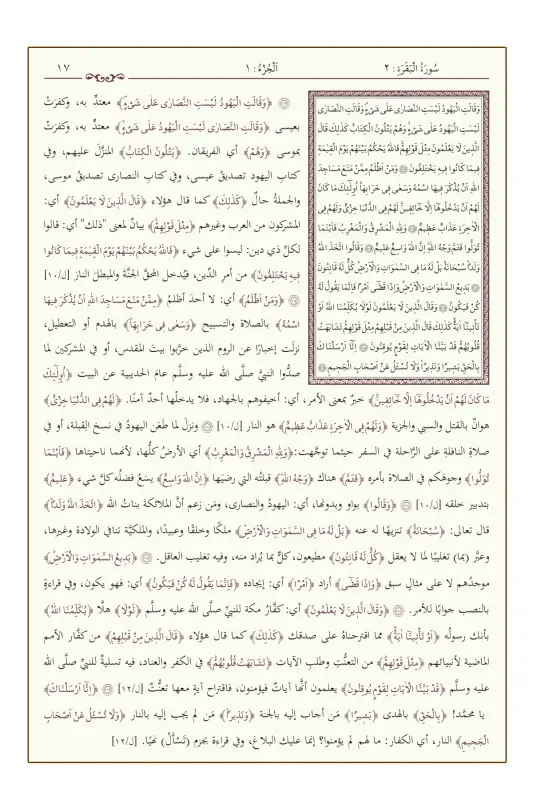 سُورَةُ الْبَقَرَةِ: ٢
اَلْجُزْءُ: ١
١٧
وَقَالَتِ الْيَهُودُ لَيْسَتِ النَّصَارٰى عَلٰى شَيْءٍ وَقَالَتِ النَّصَارٰى
لَيْسَتِ الْيَهُودُ عَلٰى شَيْءٍ وَهُمْ يَتْلُونَ الْكِتَابَ كَذٰلِكَ قَالَ
الَّذِينَ لَا يَعْلَمُونَ مِثْلَ قَوْلِهِمْ فَاللهُ يَحْكُمُ بَيْنَهُمْ يَوْمَ الْقِيٰمَةِ
فِيمَا كَانُوا فِيهِ يَخْتَلِفُونَ ۝ وَمَنْ اَظْلَمُ مِمَّنْ مَنَعَ مَسَاجِدَ
اللهِ اَنْ يُذْكَرَ فِيهَا اسْمُهُ وَسَعٰى فِي خَرَابِهَا اُولٰئِكَ مَا كَانَ
لَهُمْ اَنْ يَدْخُلُوهَا اِلَّا خَائِفِينَ لَهُمْ فِي الدُّنْيَا خِزْيٌ وَلَهُمْ فِي
الْاٰخِرَةِ عَذَابٌ عَظِيمٌ ۝ وَلِلّٰهِ الْمَشْرِقُ وَالْمَغْرِبُ فَاَيْنَمَا
تُوَلُّوا فَثَمَّ وَجْهُ اللهِ اِنَّ اللهَ وَاسِعٌ عَلِيمٌ ۝ وَقَالُوا اتَّخَذَ اللهُ
وَلَدًا سُبْحَانَهُ بَلْ لَهُ مَا فِي السَّمٰوَاتِ وَالْاَرْضِ كُلٌّ لَهُ قَانِتُونَ
۝ بَدِيعُ السَّمٰوَاتِ وَالْاَرْضِ وَاِذَا قَضٰى اَمْرًا فَاِنَّمَا يَقُولُ لَهُ
كُنْ فَيَكُونُ ۝ وَقَالَ الَّذِينَ لَا يَعْلَمُونَ لَوْلَا يُكَلِّمُنَا اللهُ اَوْ
تَأْتِينَا اٰيَةٌ كَذٰلِكَ قَالَ الَّذِينَ مِنْ قَبْلِهِمْ مِثْلَ قَوْلِهِمْ تَشَابَهَتْ
قُلُوبُهُمْ قَدْ بَيَّنَّا الْاٰيَاتِ لِقَوْمٍ يُوقِنُونَ ۝ اِنَّا اَرْسَلْنَاكَ
بِالْحَقِّ بَشِيرًا وَنَذِيرًا وَلَا تُسْئَلُ عَنْ اَصْحَابِ الْجَحِيمِ ۝
۝ ﴿وَقَالَتِ الْيَهُودُ لَيْسَتِ النَّصَارٰى عَلٰى شَيْءٍ﴾ معتدٍّ به، وكفرَتْ
بعيسى ﴿وَقَالَتِ النَّصَارٰى لَيْسَتِ الْيَهُودُ عَلٰى شَيْءٍ﴾ معتدٍّ به، وكفرَتْ
بموسى ﴿وَهُمْ﴾ أي الفريقان. ﴿يَتْلُونَ الْكِتَابَ﴾ المنزَّلَ عليهم، وفي
كتابِ اليهود تصديقُ عيسى، وفي كتابِ النصارى تصديقُ موسى،
والجملةُ حالٌ ﴿كَذٰلِكَ﴾ كما قال هؤلاء ﴿قَالَ الَّذِينَ لَا يَعْلَمُونَ﴾ أي:
المشركون من العرب وغيرهم ﴿مِثْلَ قَوْلِهِمْ﴾ بيانٌ لمعنى "ذلك" أي: قالوا
لكلِّ ذي دين: ليسوا على شيء ﴿فَاللهُ يَحْكُمُ بَيْنَهُمْ يَوْمَ الْقِيٰمَةِ فِيمَا كَانُوا
فِيهِ يَخْتَلِفُونَ﴾ من أمرِ الدِّين، فيُدخل المحقَّ الجنَّةَ والمبطلَ النارَ [ل/١٠]
۝ ﴿وَمَنْ اَظْلَمُ﴾ أي: لا أحدَ أظلمُ ﴿مِمَّنْ مَنَعَ مَسَاجِدَ اللهِ اَنْ يُذْكَرَ فِيهَا
اسْمُهُ﴾ بالصلاة والتسبيح ﴿وَسَعٰى فِي خَرَابِهَا﴾ بالهدم أو التعطيل،
نزلَت إخبارًا عن الروم الذين خرَّبوا بيتَ المقدس، أو في المشركين لما
صدُّوا النبيَّ صلَّى الله عليه وسلَّم عامَ الحديبية عن البيت ﴿اُولٰئِكَ
مَا كَانَ لَهُمْ اَنْ يَدْخُلُوهَا اِلَّا خَائِفِينَ﴾ خبرٌ بمعنى الأمر، أي: أخيفوهم بالجهاد، فلا يدخلُها أحدٌ آمنًا. ﴿لَهُمْ فِي الدُّنْيَا خِزْيٌ﴾
هوانٌ بالقتل والسبي والجزية ﴿وَلَهُمْ فِي الْاٰخِرَةِ عَذَابٌ عَظِيمٌ﴾ هو النار [ل/١٠] ۝ ونزلَ لما طَعَن اليهودُ في نسخ القِبلة، أو في
صلاةِ النافلةِ على الرَّاحلة في السفر حيثما توجَّهت: ﴿وَلِلّٰهِ الْمَشْرِقُ وَالْمَغْرِبُ﴾ أي الأرضُ كلُّها، لأنهما ناحيتاها ﴿فَاَيْنَمَا
تُوَلُّوا﴾ وجوهَكم في الصلاة بأمره ﴿فَثَمَّ﴾ هناك ﴿وَجْهُ اللهِ﴾ قبلتُه التي رضيَها ﴿اِنَّ اللهَ وَاسِعٌ﴾ يسَعُ فضلُه كلَّ شيء ﴿عَلِيمٌ﴾
بتدبير خلقه [ل/١٠] ۝ ﴿وَقَالُوا﴾ بواو وبدونها، أي: اليهودُ والنصارى، ومَن زعم أنَّ الملائكةَ بناتُ الله ﴿اتَّخَذَ اللهُ وَلَدًا﴾
قال تعالى: ﴿سُبْحَانَهُ﴾ تنزيهًا له عنه ﴿بَلْ لَهُ مَا فِي السَّمٰوَاتِ وَالْاَرْضِ﴾ ملكًا وخلقًا وعبيدًا، والملكيَّة تنافي الولادة وغيرها،
وعبَّر (بما) تغليبًا لما لا يعقل ﴿كُلٌّ لَهُ قَانِتُونَ﴾ مطيعون، كلٌّ بما يُراد منه، وفيه تغليب العاقل. ۝ ﴿بَدِيعُ السَّمٰوَاتِ وَالْاَرْضِ﴾
موجدُهم لا على مثالٍ سبق ﴿وَاِذَا قَضٰى﴾ أراد ﴿اَمْرًا﴾ أي: إيجاده ﴿فَاِنَّمَا يَقُولُ لَهُ كُنْ فَيَكُونُ﴾ أي: فهو يكون، وفي قراءةٍ
بالنصب جوابًا للأمر. ۝ ﴿وَقَالَ الَّذِينَ لَا يَعْلَمُونَ﴾ أي: كفَّارُ مكة للنبيِّ صلَّى الله عليه وسلَّم ﴿لَوْلَا﴾ هلَّا ﴿يُكَلِّمُنَا اللهُ﴾
بأنك رسولُه ﴿اَوْ تَأْتِينَا اٰيَةٌ﴾ مما اقترحناهُ على صدقك ﴿كَذٰلِكَ﴾ كما قال هؤلاء ﴿قَالَ الَّذِينَ مِنْ قَبْلِهِمْ﴾ من كفَّار الأمم
الماضية لأنبيائهم ﴿مِثْلَ قَوْلِهِمْ﴾ من التعنُّتِ وطلبِ الآيات ﴿تَشَابَهَتْ قُلُوبُهُمْ﴾ في الكفر والعناد، فيه تسليةٌ للنبيِّ صلَّى الله
عليه وسلَّم ﴿قَدْ بَيَّنَّا الْاٰيَاتِ لِقَوْمٍ يُوقِنُونَ﴾ يعلمون أنَّها آياتٌ فيؤمنون، فاقتراح آيةٍ معها تعنُّتٌ [ل/١٢] ۝ ﴿اِنَّا اَرْسَلْنَاكَ﴾
يا محمَّد! ﴿بِالْحَقِّ﴾ بالهدى ﴿بَشِيرًا﴾ مَن أجاب إليه بالجنة ﴿وَنَذِيرًا﴾ مَن لم يجب إليه بالنار ﴿وَلَا تُسْئَلُ عَنْ اَصْحَابِ
الْجَحِيمِ﴾ النار، أي الكفار: ما لهم لم يؤمنوا؟ إنما عليك البلاغ، وفي قراءة بجزم (تَسْأَلْ) نهيًا. [ل/١٢]